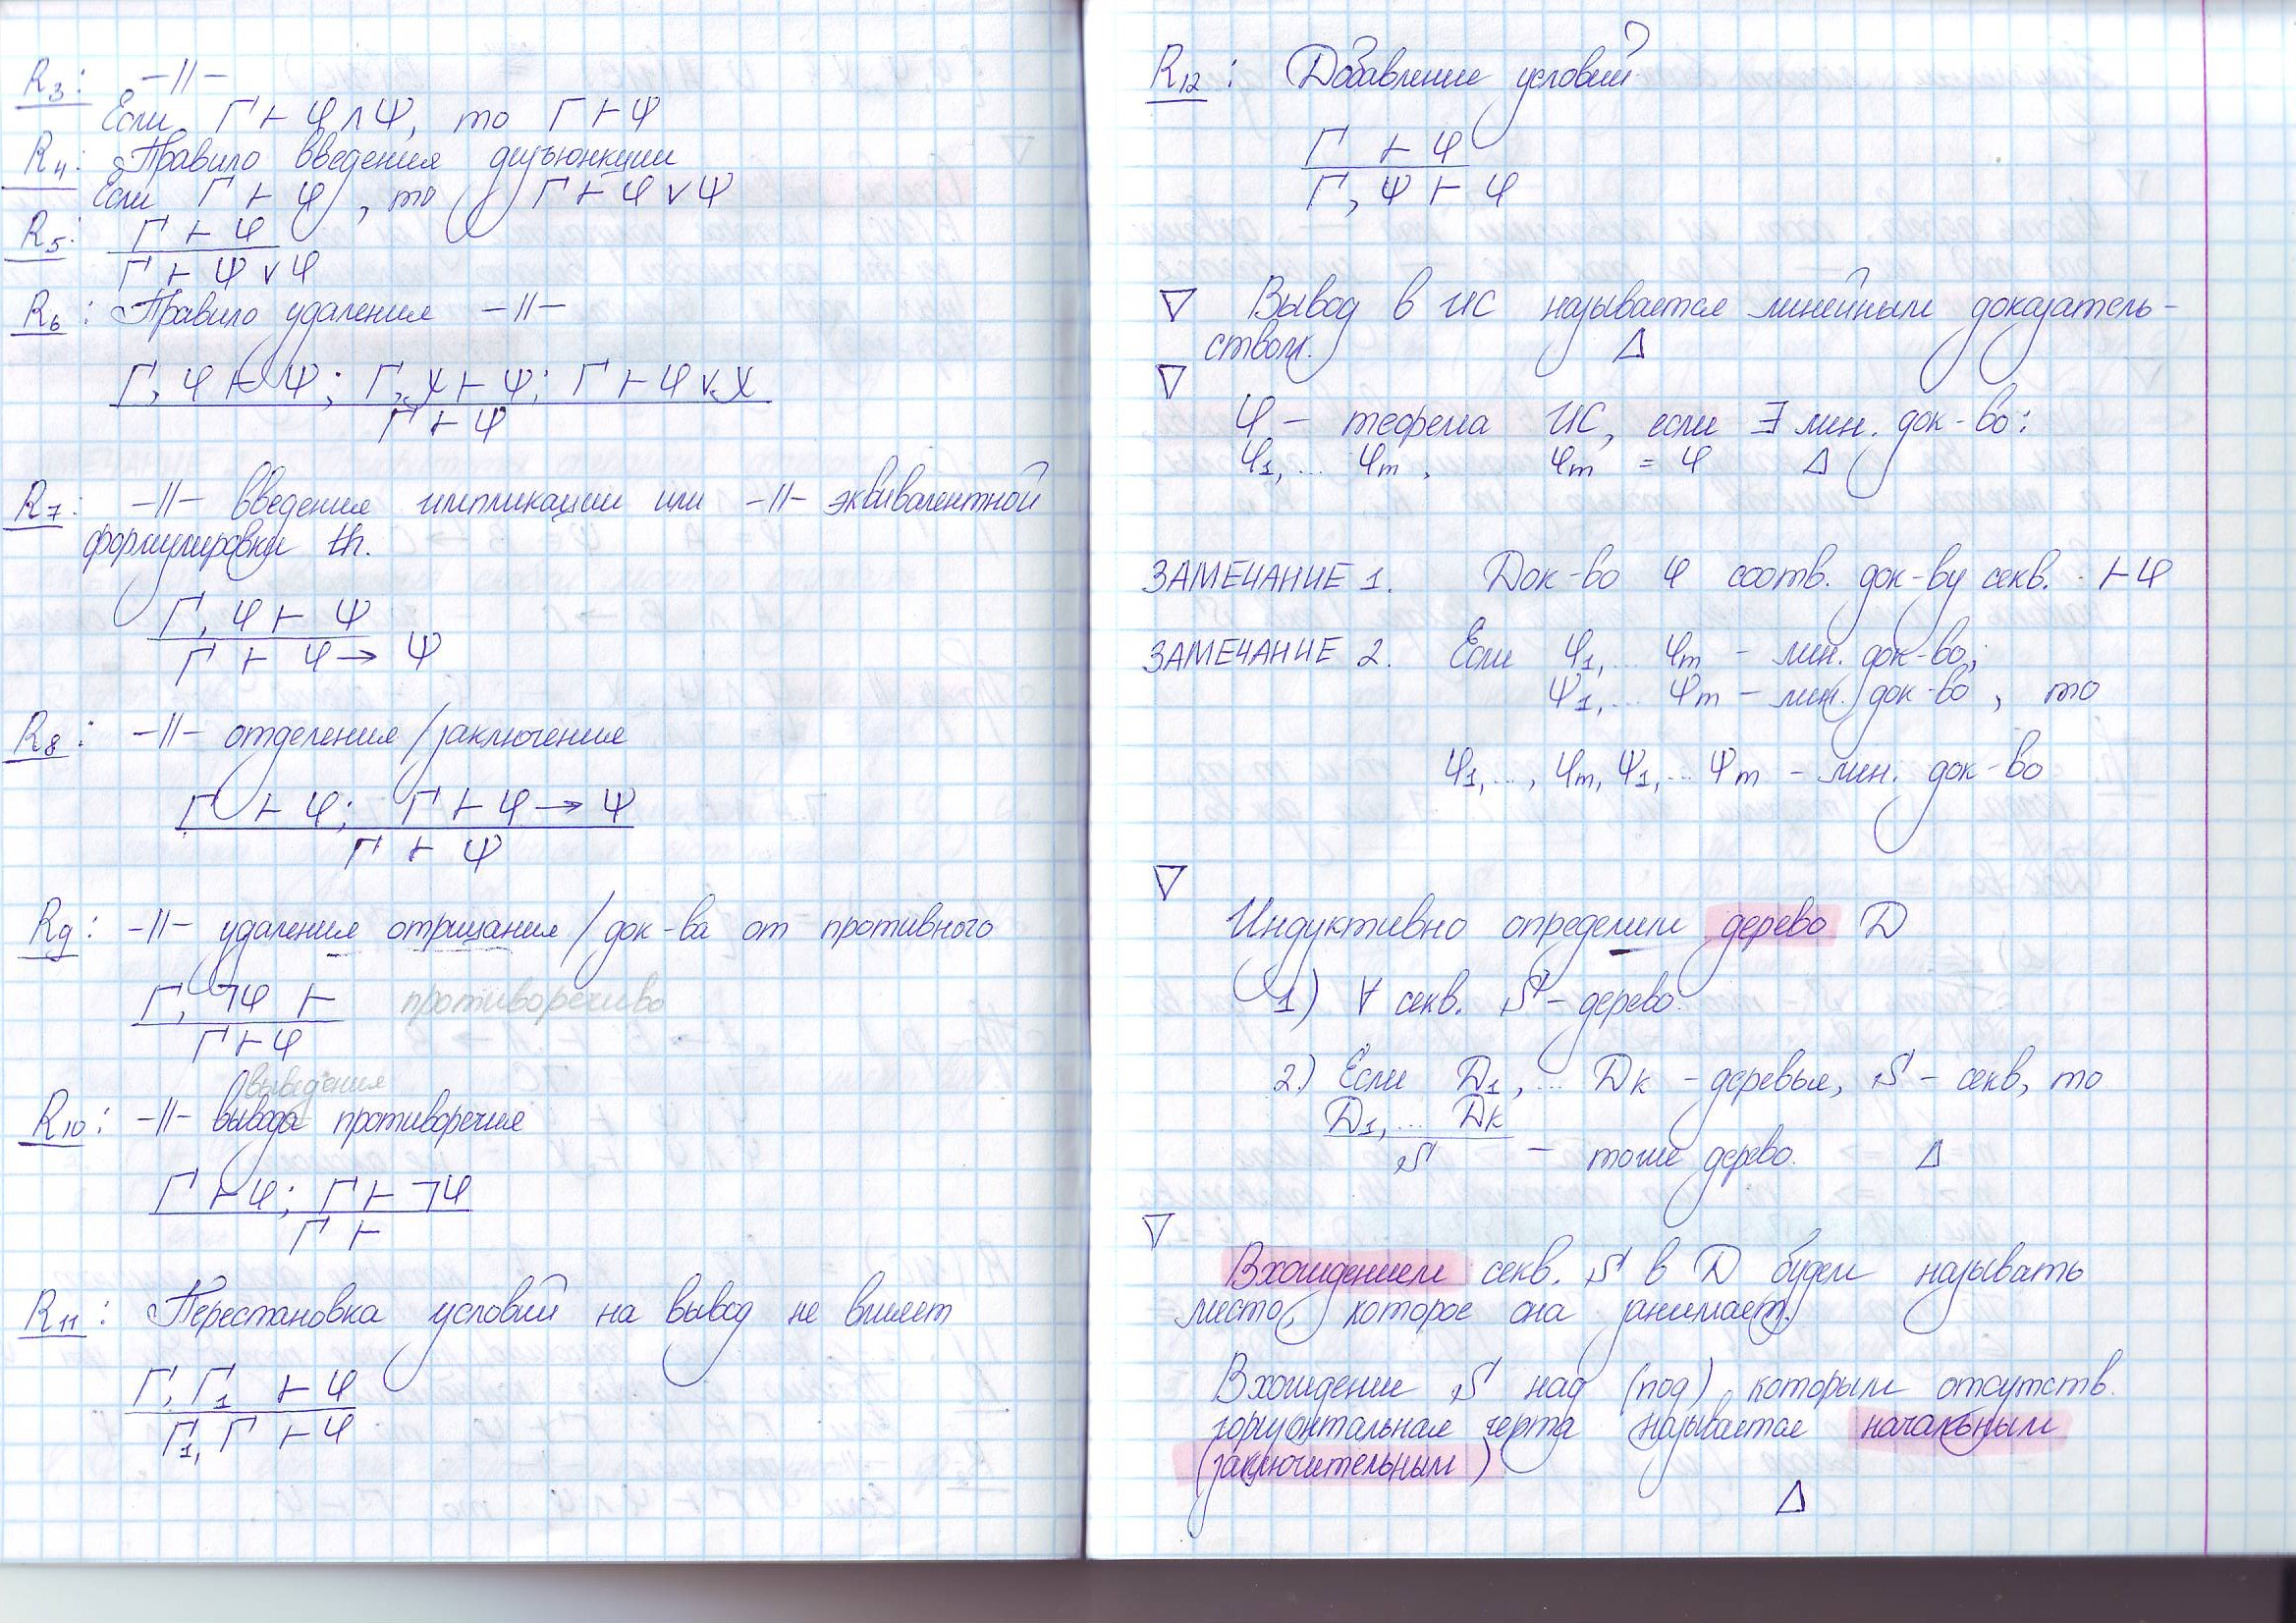 R3: –//–
Если Γ ⊢ φ ∧ ψ, то Γ ⊢ ψ
R4: Правило введения дизъюнкции
Если Γ ⊢ φ, то Γ ⊢ φ ∨ ψ
R5: Γ ⊢ φ
Γ ⊢ ψ ∨ φ
R6: Правило удаления –//–
Γ, φ ⊢ ψ; Γ, χ ⊢ ψ; Γ ⊢ φ ∨ χ
Γ ⊢ ψ
R7: –//– введения импликации или –//– эквивалентной
формулировки th.
Γ, φ ⊢ ψ
Γ ⊢ φ → ψ
R8: –//– отделения/заключения
Γ ⊢ φ; Γ ⊢ φ → ψ
Γ ⊢ ψ
R9: –//– удаления отрицания / док-ва от противного
Γ, ¬φ ⊢ противоречиво
Γ ⊢ φ
выведения
R10: –//– вывода противоречия
Γ ⊢ φ; Γ ⊢ ¬φ
Γ ⊢
R11: Перестановка условий на вывод не влияет
Γ, Γ1 ⊢ φ
Γ1, Γ ⊢ φ
R12: Добавление условий
Γ ⊢ φ
Γ, ψ ⊢ φ
▽ Вывод в ИС называется линейным доказатель-
ством. Δ
▽
φ – теорема ИС, если ∃ лин. док-во:
φ1, ... φm, φm = φ Δ
ЗАМЕЧАНИЕ 1. Док-во φ соотв. док-ву секв. ⊢ φ
ЗАМЕЧАНИЕ 2. Если φ1, ... φm – лин. док-во;
ψ1, ... ψm – лин. док-во, то
φ1, ..., φm, ψ1, ... ψm – лин. док-во
▽
Индуктивно определим дерево D
1) ∀ секв. S – дерево
2) Если D1, ... Dк – деревья, S – секв, то
D1, ... Dк
S – тоже дерево. Δ
▽
Вхождением секв. S в D будем называть
место, которое она занимает.
Вхождение S над (под) которым отсутств.
горизонтальная черта называется начальным
(заключительным)
Δ